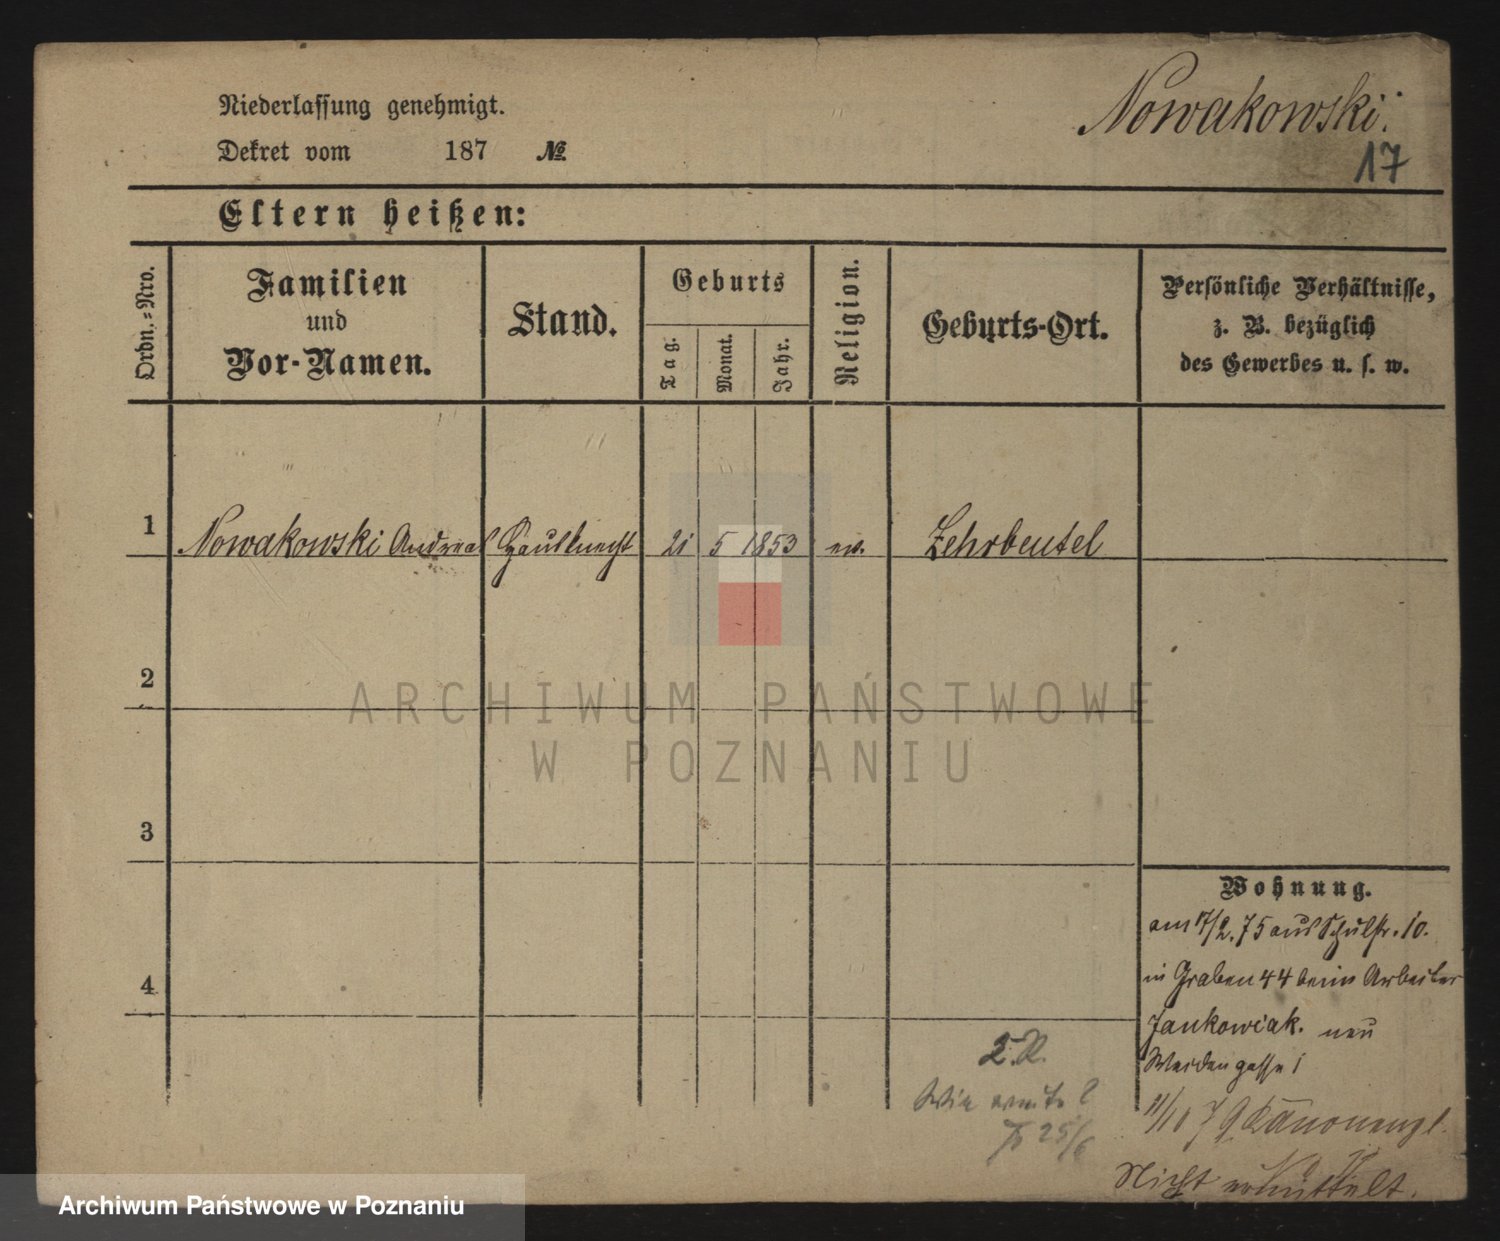 Nowakowski
17
Niederlassung genehmigt.
Dekret vom 187 №
Eltern heißen:
Ordn.-Nro.
Familien
und
Vor-Namen.
Stand.
Geburts
Tag.
Monat.
Jahr.
Religion.
Geburts-Ort.
Persönliche Verhältnisse,
z. B. bezüglich
des Gewerbes u. s. w.
1 Nowakowski Andreas Hausknecht 21 5 1853 ev. Lehrbeutel
2
3
4
Wohnung.
am 17/2. 75 aus Schulstr. 10.
in Graben 44 beim Arbeiter
Jankowiak. neu
Weidengasse 1
11/10 79 Kanonenpl.
Nicht ermittelt.
25/6
ARCHIWUM PAŃSTWOWE
W POZNANIU
Archiwum Państwowe w Poznaniu